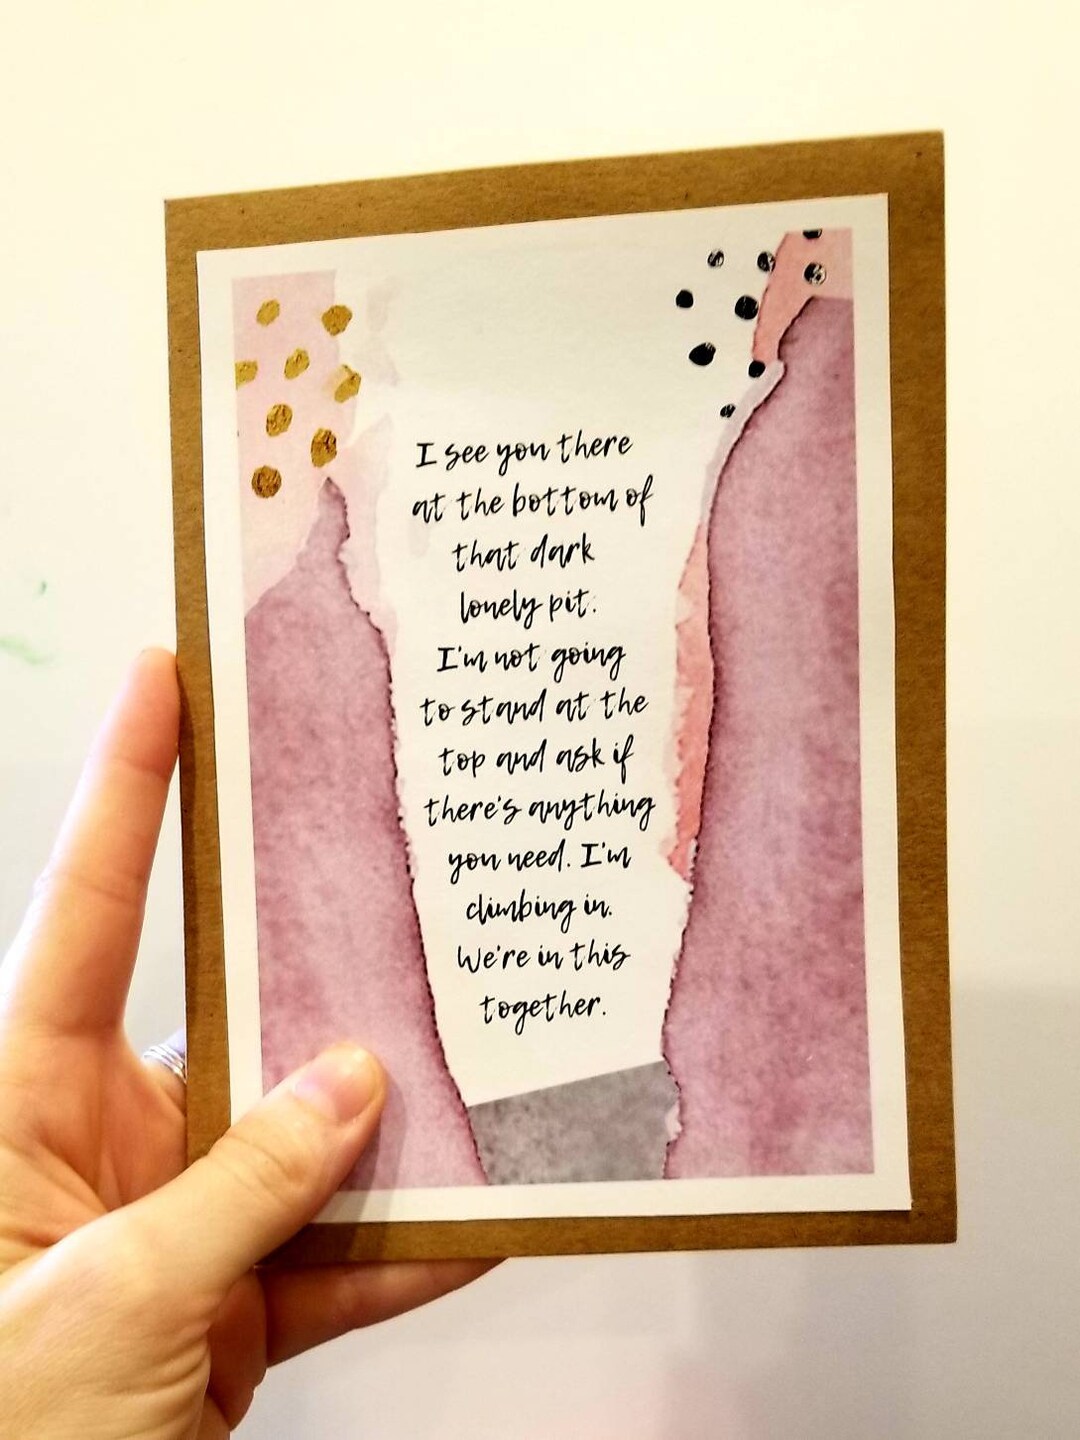 I see you there
at the bottom of
that dark
lonely pit.
I'm not going
to stand at the
top and ask if
there's anything
you need. I'm
climbing in.
We're in this
together.